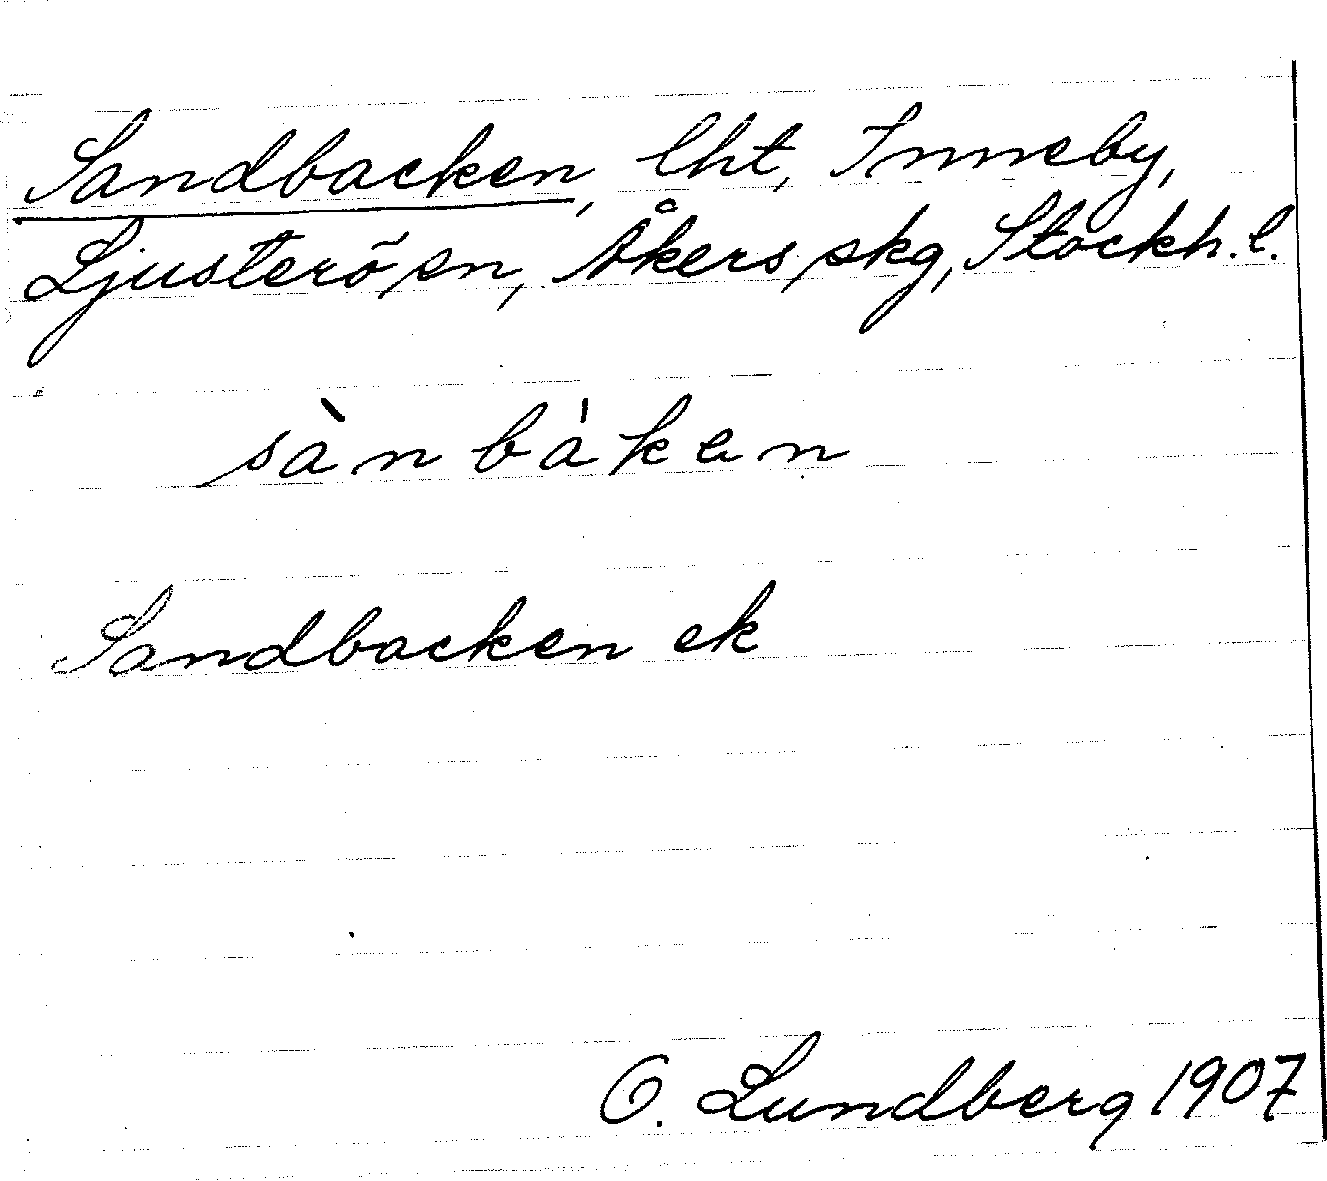 Sandbacken, lht, Inneby,
Ljusterö sn, Åkers skg, Stockh. l.
sànbákен
Sandbacken ek
O. Lundberg 1907